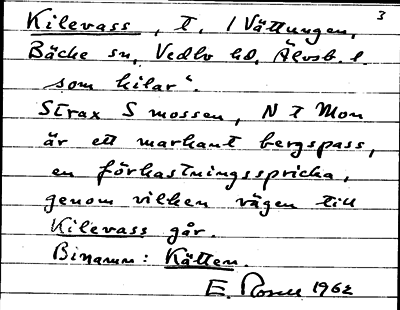 3
Kilevass, t. /Vättungen,
Bäcke sn, Vedbo hd, Älvsb. l.
som kilar".
Strax S mossen, N t Mon
är ett markant bergspass,
en förkastningsspricka,
genom vilken vägen till
Kilevass går.
Binamn: Kätten.
E. Rosell 1962